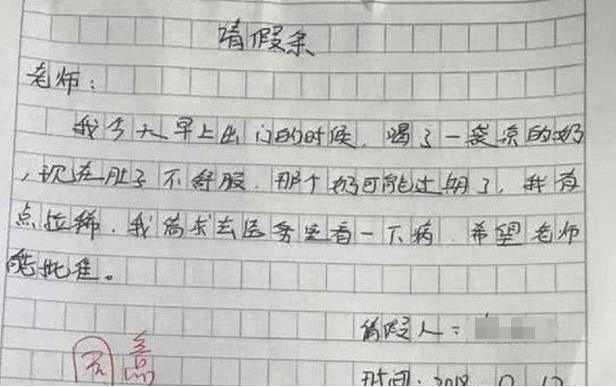 请假条
老师：
我今天早上出门的时候，喝了一袋凉的奶
，现在肚子不舒服，那个奶可能过期了，我有
点拉稀，我请求去医务室看一下病，希望老师
能批准。
请假人：
同意
时间：2018